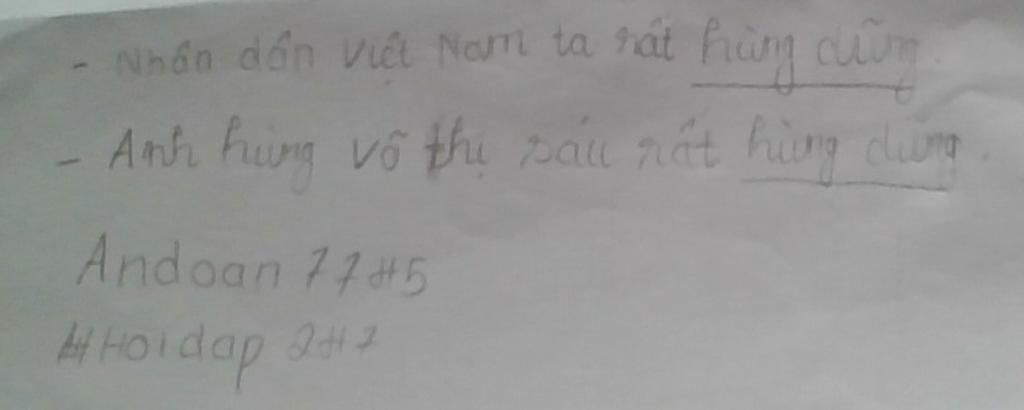 - Nhân dân Việt Nam ta rất hùng dũng.
- Anh hùng võ thị sáu rất hùng dũng.
Andoan 77#5
#Hoidap 2#7